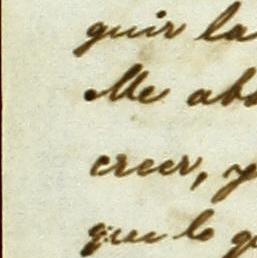 guir la
Me abo
creer, y
que lo q